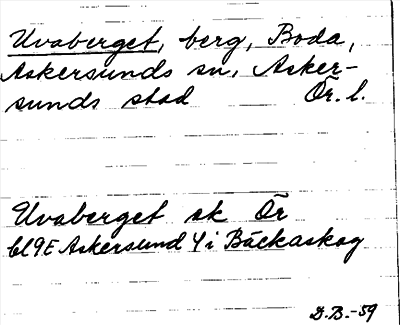 Uvaberget, berg, Boda,
Askersunds sn, Asker-
sunds stad Ör. l.
Uvaberget sk Ör
bl 9E Askersund 4 i Bäckaskog
D.B.-59